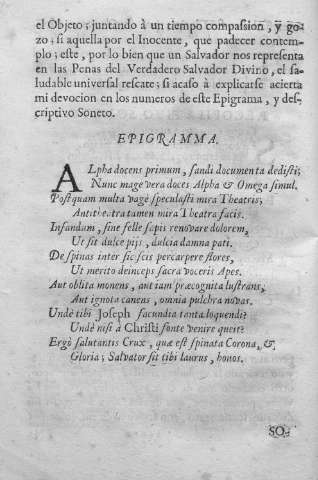 el Objeto; juntando à un tiempo compassion, y go-
zo; si aquella por el Inocente, que padecer contem-
plo; este, por lo bien que un Salvador nos representa
en las Penas del Verdadero Salvador Divino, el sa-
ludable universal rescate; si acaso à explicarse acierta
mi devocion en los numeros de este Epigrama, y des-
criptivo Soneto.
EPIGRAMMA.
ALpha docens primum, fandi documenta dedisti;
Nunc mage vera doces Alpha & Omega simul.
Postquam multa vagè speculasti mira Theatris;
Antitheatra tamen mira Theatra facis.
Infandum, sine felle sapis renovare dolorem,
Ut sit dulce pijs, dulcia damna pati.
De spinas inter sic scis percarpere flores,
Ut merito deinceps sacra voceris Apes.
Aut oblita monens, aut iam præcognita lustrans,
Aut ignota canens, omnia pulchra novas.
Undè tibi Joseph facundia tanta loquendi?
Undè nisi à Christi fonte venire queat?
Ergò salutantis Crux, quæ est spinata Corona, &
Gloria; Salvator sit tibi laurus, honos.
SO-